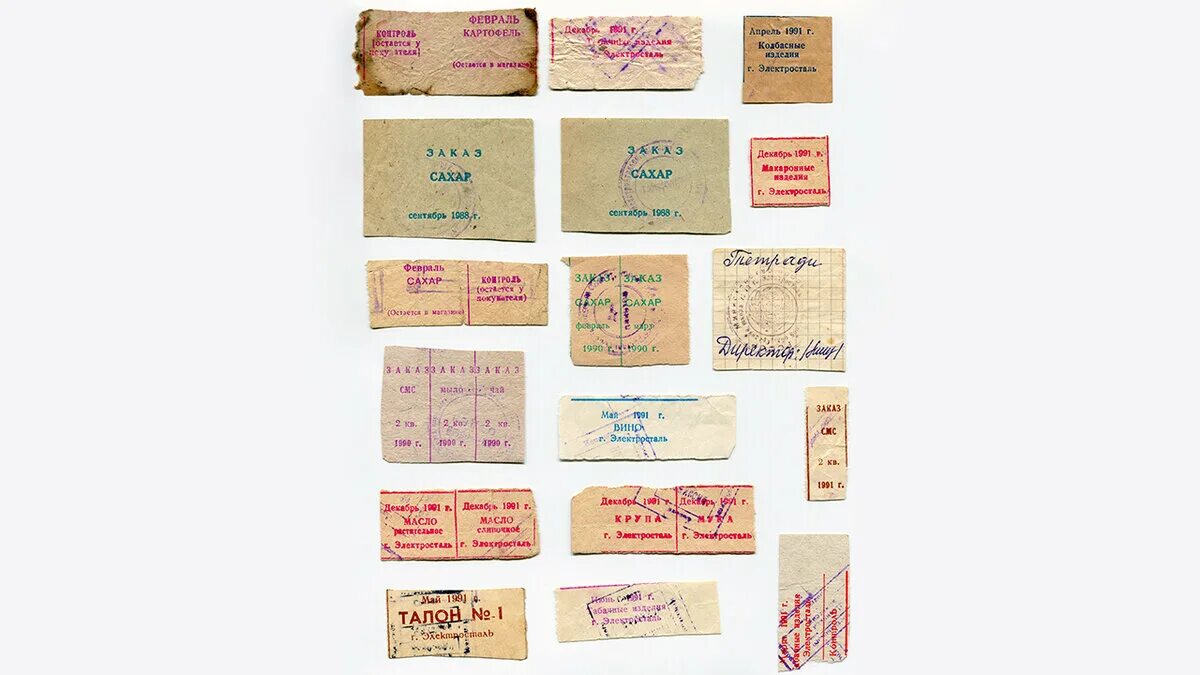 КОНТРОЛЬ
(остается у
покупателя)
ФЕВРАЛЬ
КАРТОФЕЛЬ
(Остается в магазине)
Декабрь 1991 г.
изделия
Электросталь
Апрель 1991 г.
Колбасные
изделия
г. Электросталь
ЗАКАЗ
САХАР
сентябрь 1988 г.
ЗАКАЗ
САХАР
сентябрь 1988 г.
Декабрь 1991 г.
Макаронные
изделия
г. Электросталь
Февраль
САХАР
(Остается в магазине)
КОНТРОЛЬ
(остается у
покупателя)
ЗАКАЗ
САХАР
февраль
1990 г.
ЗАКАЗ
САХАР
март
1990 г.
Тетради
Директор:
ЗАКАЗ
СМС
2 кв.
1990 г.
ЗАКАЗ
мыло
2 кв.
1990 г.
ЗАКАЗ
чай
2 кв.
1990 г.
Май 1991 г.
ВИНО
г. Электросталь
ЗАКАЗ
СМС
2 кв.
1991 г.
Декабрь 1991 г.
МАСЛО
растительное
г. Электросталь
Декабрь 1991 г.
МАСЛО
сливочное
г. Электросталь
Декабрь 1991 г.
КРУПА
г. Электросталь
Декабрь 1991 г.
МУКА
г. Электросталь
Май 1991 г.
ТАЛОН № 1
г. Электросталь
Июнь 1991 г.
абачные изделия
г. Электросталь
1991 г.
абачные изделия
Электросталь
Контроль